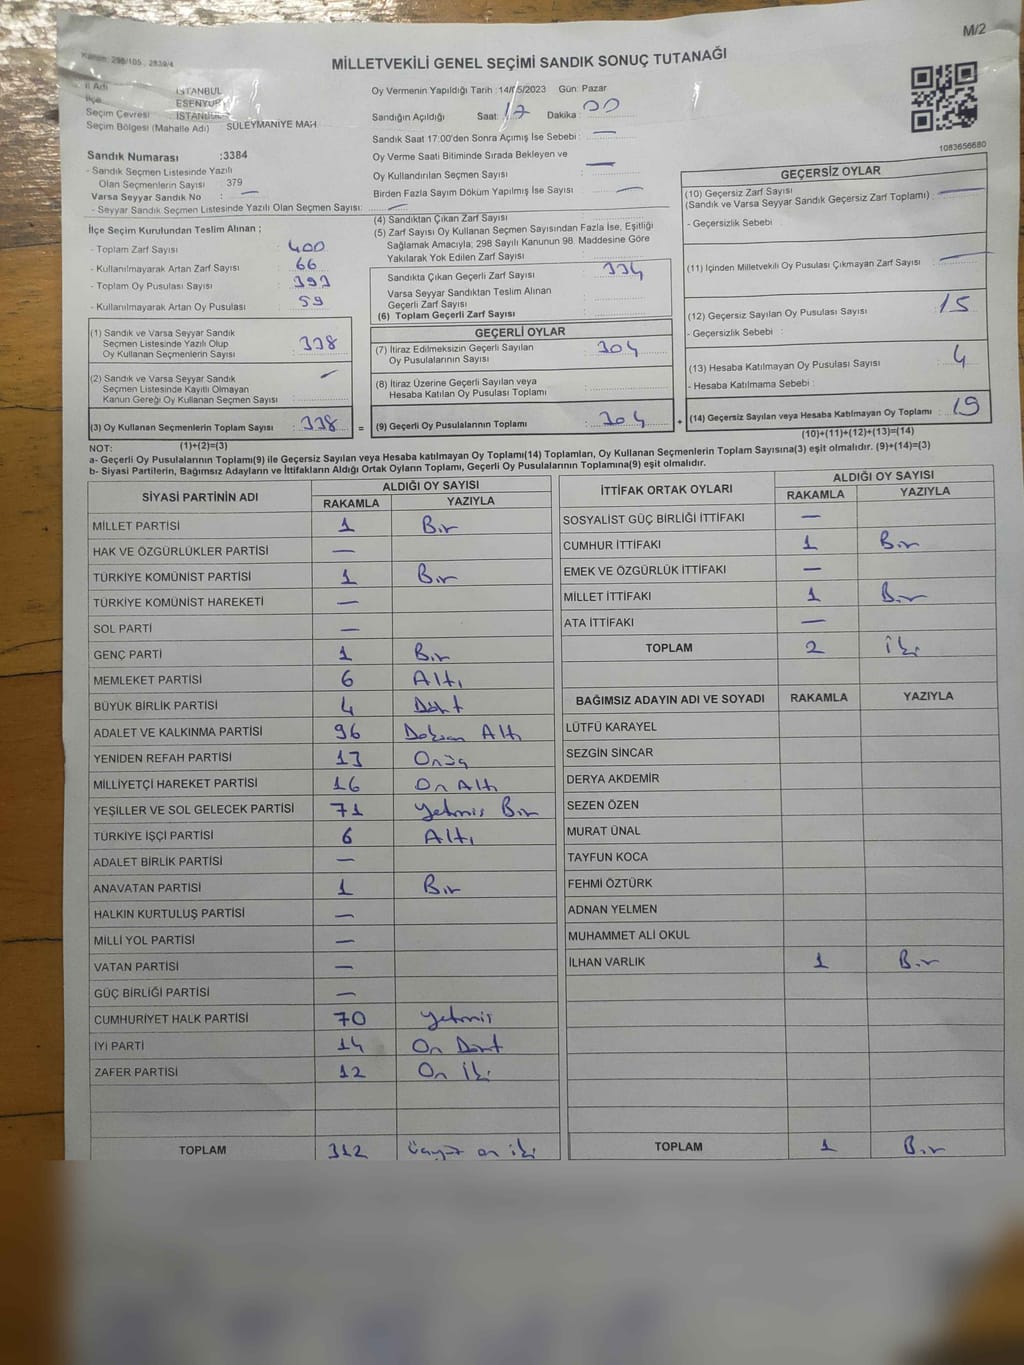 M/2
Kanun: 298/105, 2839/4
MİLLETVEKİLİ GENEL SEÇİMİ SANDIK SONUÇ TUTANAĞI
İl Adı : İSTANBUL
İlçe : ESENYURT
Seçim Çevresi : İSTANBUL
Seçim Bölgesi (Mahalle Adı) : SÜLEYMANİYE MAH
Sandık Numarası :3384
- Sandık Seçmen Listesinde Yazılı
Olan Seçmenlerin Sayısı : 379
Varsa Seyyar Sandık No : —
- Seyyar Sandık Seçmen Listesinde Yazılı Olan Seçmen Sayısı: —
Oy Vermenin Yapıldığı Tarih :14/05/2023 Gün: Pazar
Sandığın Açıldığı Saat: 17 Dakika: 00
Sandık Saat 17:00'den Sonra Açımış İse Sebebi : —
Oy Verme Saati Bitiminde Sırada Bekleyen ve
Oy Kullandırılan Seçmen Sayısı : —
Birden Fazla Sayım Döküm Yapılmış İse Sayısı : —
1083656680
İlçe Seçim Kurulundan Teslim Alınan ;
- Toplam Zarf Sayısı : 400
- Kullanılmayarak Artan Zarf Sayısı : 66
- Toplam Oy Pusulası Sayısı : 393
- Kullanılmayarak Artan Oy Pusulası : 59
(1) Sandık ve Varsa Seyyar Sandık
Seçmen Listesinde Yazılı Olup
Oy Kullanan Seçmenlerin Sayısı : 338
(2) Sandık ve Varsa Seyyar Sandık
Seçmen Listesinde Kayıtlı Olmayan
Kanun Gereği Oy Kullanan Seçmen Sayısı : —
(3) Oy Kullanan Seçmenlerin Toplam Sayısı : 338 =
(1)+(2)=(3)
(4) Sandıktan Çıkan Zarf Sayısı :
(5) Zarf Sayısı Oy Kullanan Seçmen Sayısından Fazla İse, Eşitliği
Sağlamak Amacıyla; 298 Sayılı Kanunun 98. Maddesine Göre
Yakılarak Yok Edilen Zarf Sayısı :
Sandıkta Çıkan Geçerli Zarf Sayısı : 334
Varsa Seyyar Sandıktan Teslim Alınan
Geçerli Zarf Sayısı :
(6) Toplam Geçerli Zarf Sayısı :
GEÇERLİ OYLAR
(7) İtiraz Edilmeksizin Geçerli Sayılan
Oy Pusulalarının Sayısı : 304
(8) İtiraz Üzerine Geçerli Sayılan veya
Hesaba Katılan Oy Pusulası Toplamı :
(9) Geçerli Oy Pusulalarının Toplamı : 304 +
GEÇERSİZ OYLAR
(10) Geçersiz Zarf Sayısı
(Sandık ve Varsa Seyyar Sandık Geçersiz Zarf Toplamı) : —
- Geçersizlik Sebebi :
(11) İçinden Milletvekili Oy Pusulası Çıkmayan Zarf Sayısı : —
(12) Geçersiz Sayılan Oy Pusulası Sayısı : 15
- Geçersizlik Sebebi :
(13) Hesaba Katılmayan Oy Pusulası Sayısı : 4
- Hesaba Katılmama Sebebi :
(14) Geçersiz Sayılan veya Hesaba Katılmayan Oy Toplamı : 19
(10)+(11)+(12)+(13)=(14)
NOT:
a- Geçerli Oy Pusulalarının Toplamı(9) ile Geçersiz Sayılan veya Hesaba katılmayan Oy Toplamı(14) Toplamları, Oy Kullanan Seçmenlerin Toplam Sayısına(3) eşit olmalıdır. (9)+(14)=(3)
b- Siyasi Partilerin, Bağımsız Adayların ve İttifakların Aldığı Ortak Oyların Toplamı, Geçerli Oy Pusulalarının Toplamına(9) eşit olmalıdır.
SİYASİ PARTİNİN ADI ALDIĞI OY SAYISI
RAKAMLA YAZIYLA
MİLLET PARTİSİ 1 Bir
HAK VE ÖZGÜRLÜKLER PARTİSİ —
TÜRKİYE KOMÜNİST PARTİSİ 1 Bir
TÜRKİYE KOMÜNİST HAREKETİ —
SOL PARTİ —
GENÇ PARTİ 1 Bir
MEMLEKET PARTİSİ 6 Altı
BÜYÜK BİRLİK PARTİSİ 4 Dört
ADALET VE KALKINMA PARTİSİ 96 Doksan Altı
YENİDEN REFAH PARTİSİ 13 Onüç
MİLLİYETÇİ HAREKET PARTİSİ 16 On Altı
YEŞİLLER VE SOL GELECEK PARTİSİ 71 Yetmiş Bir
TÜRKİYE İŞÇİ PARTİSİ 6 Altı
ADALET BİRLİK PARTİSİ —
ANAVATAN PARTİSİ 1 Bir
HALKIN KURTULUŞ PARTİSİ —
MİLLİ YOL PARTİSİ —
VATAN PARTİSİ —
GÜÇ BİRLİĞİ PARTİSİ —
CUMHURİYET HALK PARTİSİ 70 Yetmiş
İYİ PARTİ 14 On Dört
ZAFER PARTİSİ 12 On İki
TOPLAM 312 üçyüz on iki
İTTİFAK ORTAK OYLARI ALDIĞI OY SAYISI
RAKAMLA YAZIYLA
SOSYALİST GÜÇ BİRLİĞİ İTTİFAKI —
CUMHUR İTTİFAKI 1 Bir
EMEK VE ÖZGÜRLÜK İTTİFAKI —
MİLLET İTTİFAKI 1 Bir
ATA İTTİFAKI —
TOPLAM 2 İki
BAĞIMSIZ ADAYIN ADI VE SOYADI RAKAMLA YAZIYLA
LÜTFÜ KARAYEL
SEZGİN SİNCAR
DERYA AKDEMİR
SEZEN ÖZEN
MURAT ÜNAL
TAYFUN KOCA
FEHMİ ÖZTÜRK
ADNAN YELMEN
MUHAMMET ALİ OKUL
İLHAN VARLIK 1 Bir
TOPLAM 1 Bir